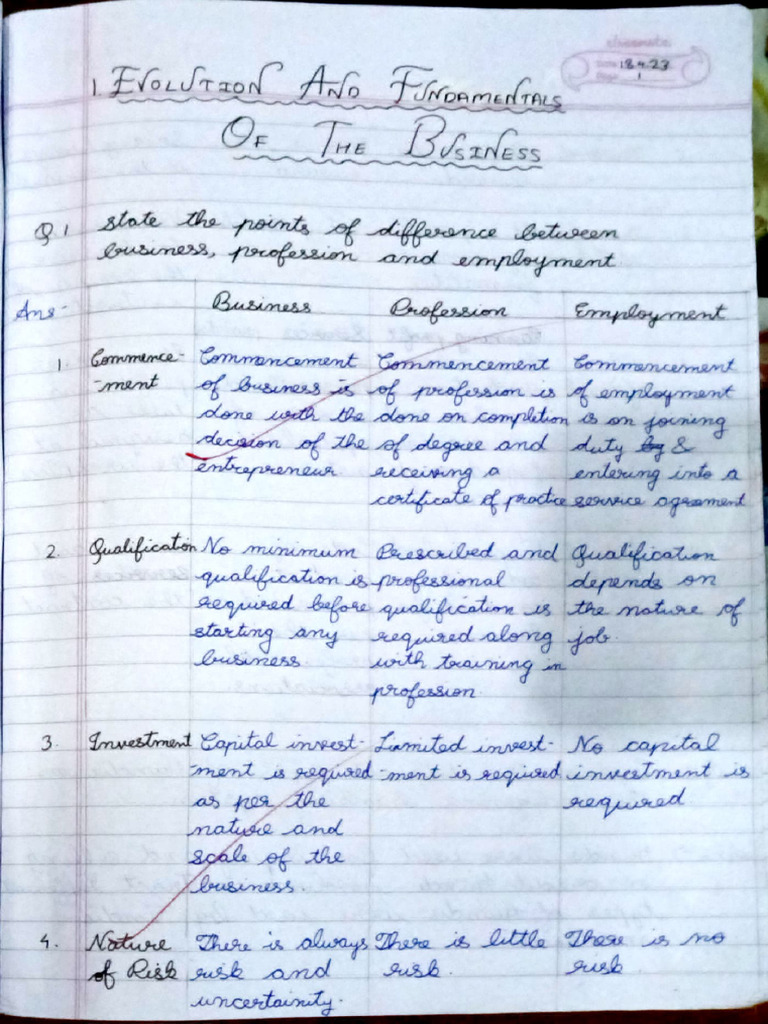 classmate
Date 18.4.23
Page 1
1. EVOLUTION AND FUNDAMENTALS
OF THE BUSINESS
Q1 state the points of difference between
business, profession and employment.
Ans- Business Profession Employment
1. Commence- Commencement Commencement Commencement
-ment of business is of profession is of employment
done with the done on completion is on joining
decision of the of degree and duty by &
entrepreneur receiving a entering into a
certificate of practice service agreement
2. Qualification No minimum Prescribed and Qualification
qualification is professional depends on
required before qualification is the nature of
starting any required along job.
business. with training in
profession.
3. Investment Capital invest- Limited invest- No capital
-ment is required -ment is required investment is
as per the required
nature and
scale of the
business.
4. Nature There is always There is little There is no
of Risk risk and risk. risk.
uncertainity.